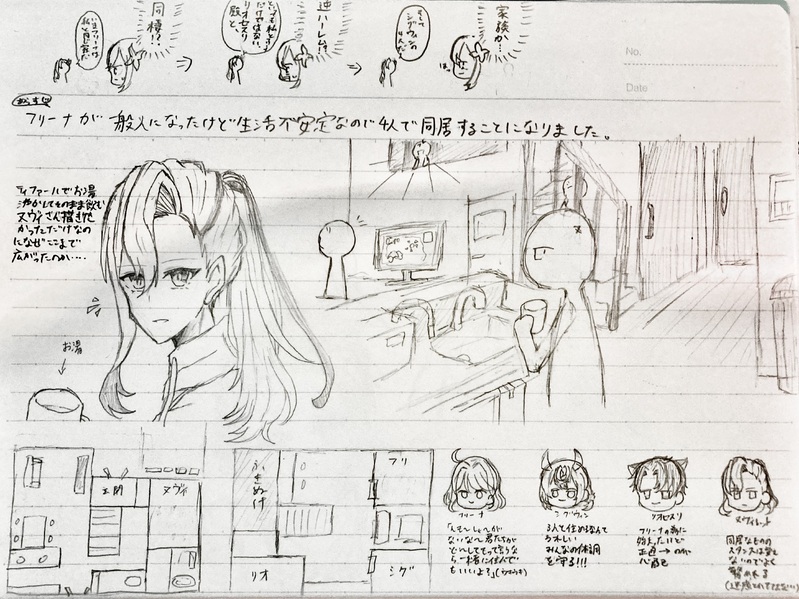 同棲!?
いまフリーナは
私と同じ家だ
逆ハーレム!?
いつも私とき
だけではない、
リオセスリ
殿と、
家族か…
そして
シグウィンの
4人だ
No.
Date
フリーナが 般人になったけど生活不安定なので4人で同居することになりました。
ティファールでお湯
沸かしてそのまま飲む
ヌヴィさん描きた
かっただけなの
になぜここまで
広がったのか….
お湯
玄関
ヌヴィ
ふきぬけ
フリ
リオ
シグ
フリーナ
シグウィン
リオセスリ
ヌヴィレット
「ん〜しょ〜が
ないな〜君たちが
どーしてもって言うなら
一緒に住んで
もいいよ?」
3人と住めるなんて
うれしい
みんなの体調
を守る!!!
フリーナの為に
始めたけど
心配
同居なものの
スタンスは変え
ないのでよく